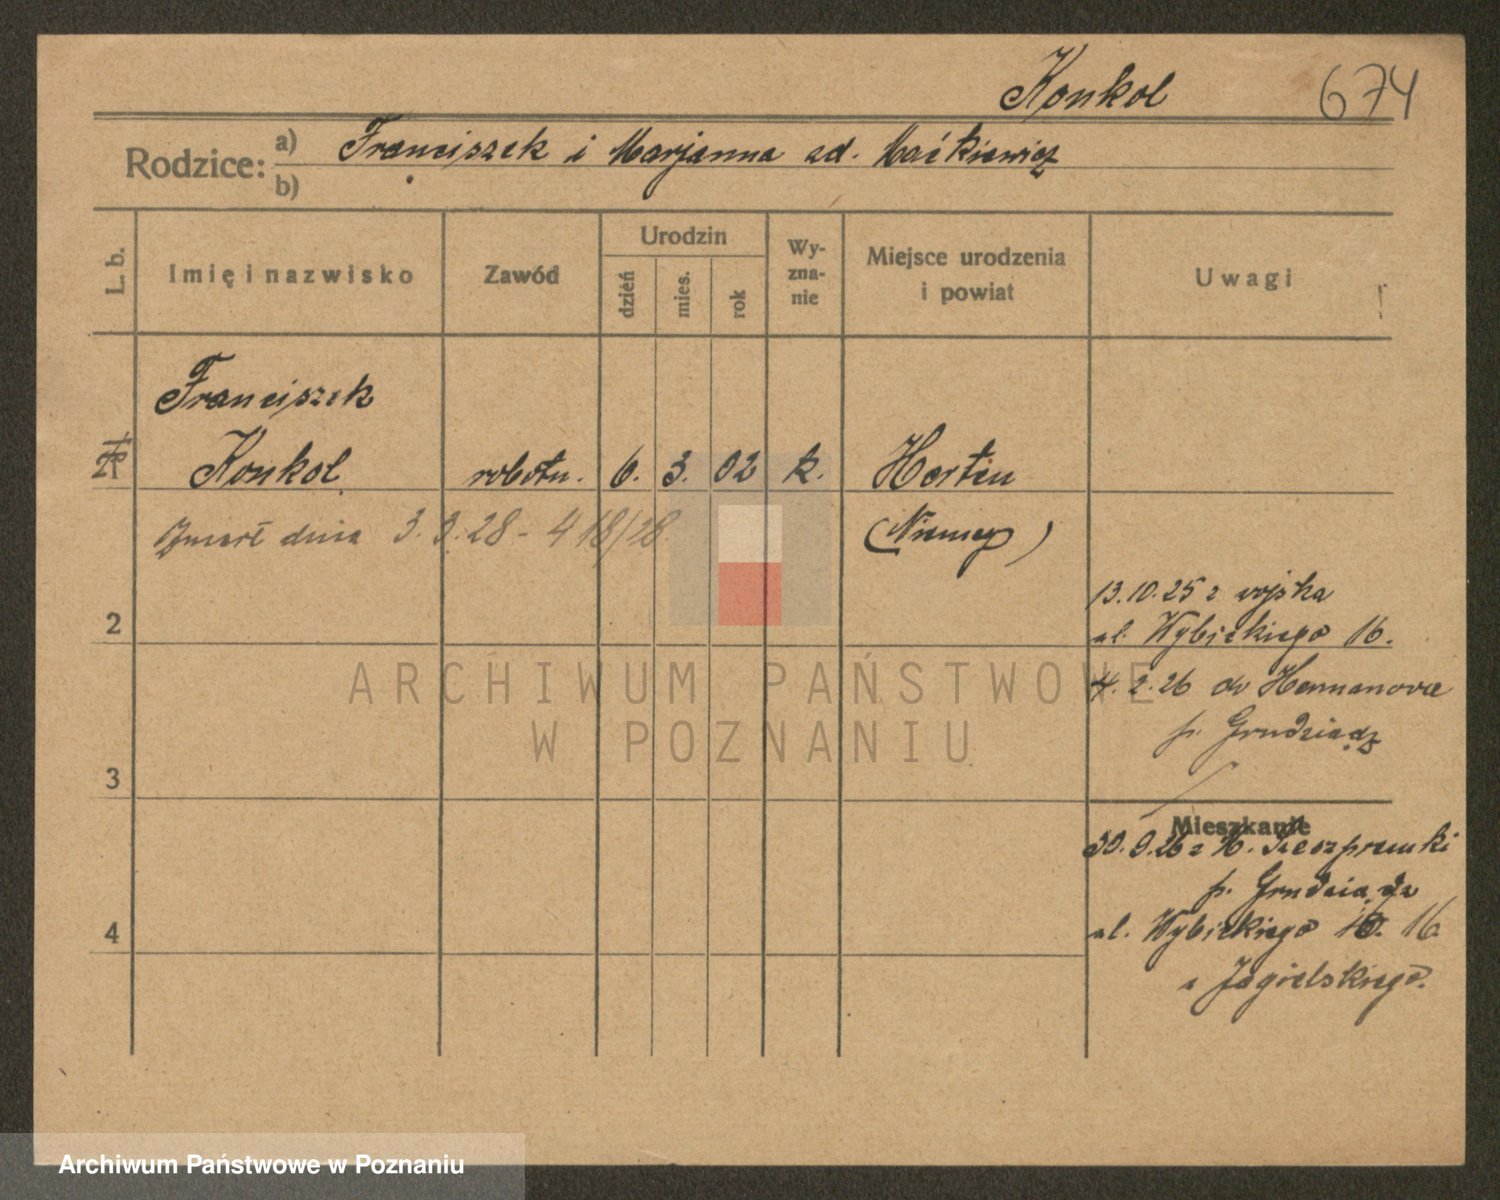 Konkol 674
Rodzice: a) Franciszek i Marjanna zd. Maćkiewicz
b)
L. b. Imię i nazwisko Zawód Urodzin dzień mies. rok Wyznanie Miejsce urodzenia i powiat Uwagi
Franciszek
Konkol robotn. 6. 3. 02 k. Herten
Zmarł dnia 3.3.28 - 418/28 (Niemcy)
13.10.25 z wojska
2 ul. Wybickiego 16.
4.2.26 do Hermanowa
p. Grudziądz
3
Mieszkanie
30.9.26 z
p. Grudziądz
4 ul. Wybickiego 16
u Jagielskiego.
ARCHIWUM PAŃSTWOWE
W POZNANIU
Archiwum Państwowe w Poznaniu